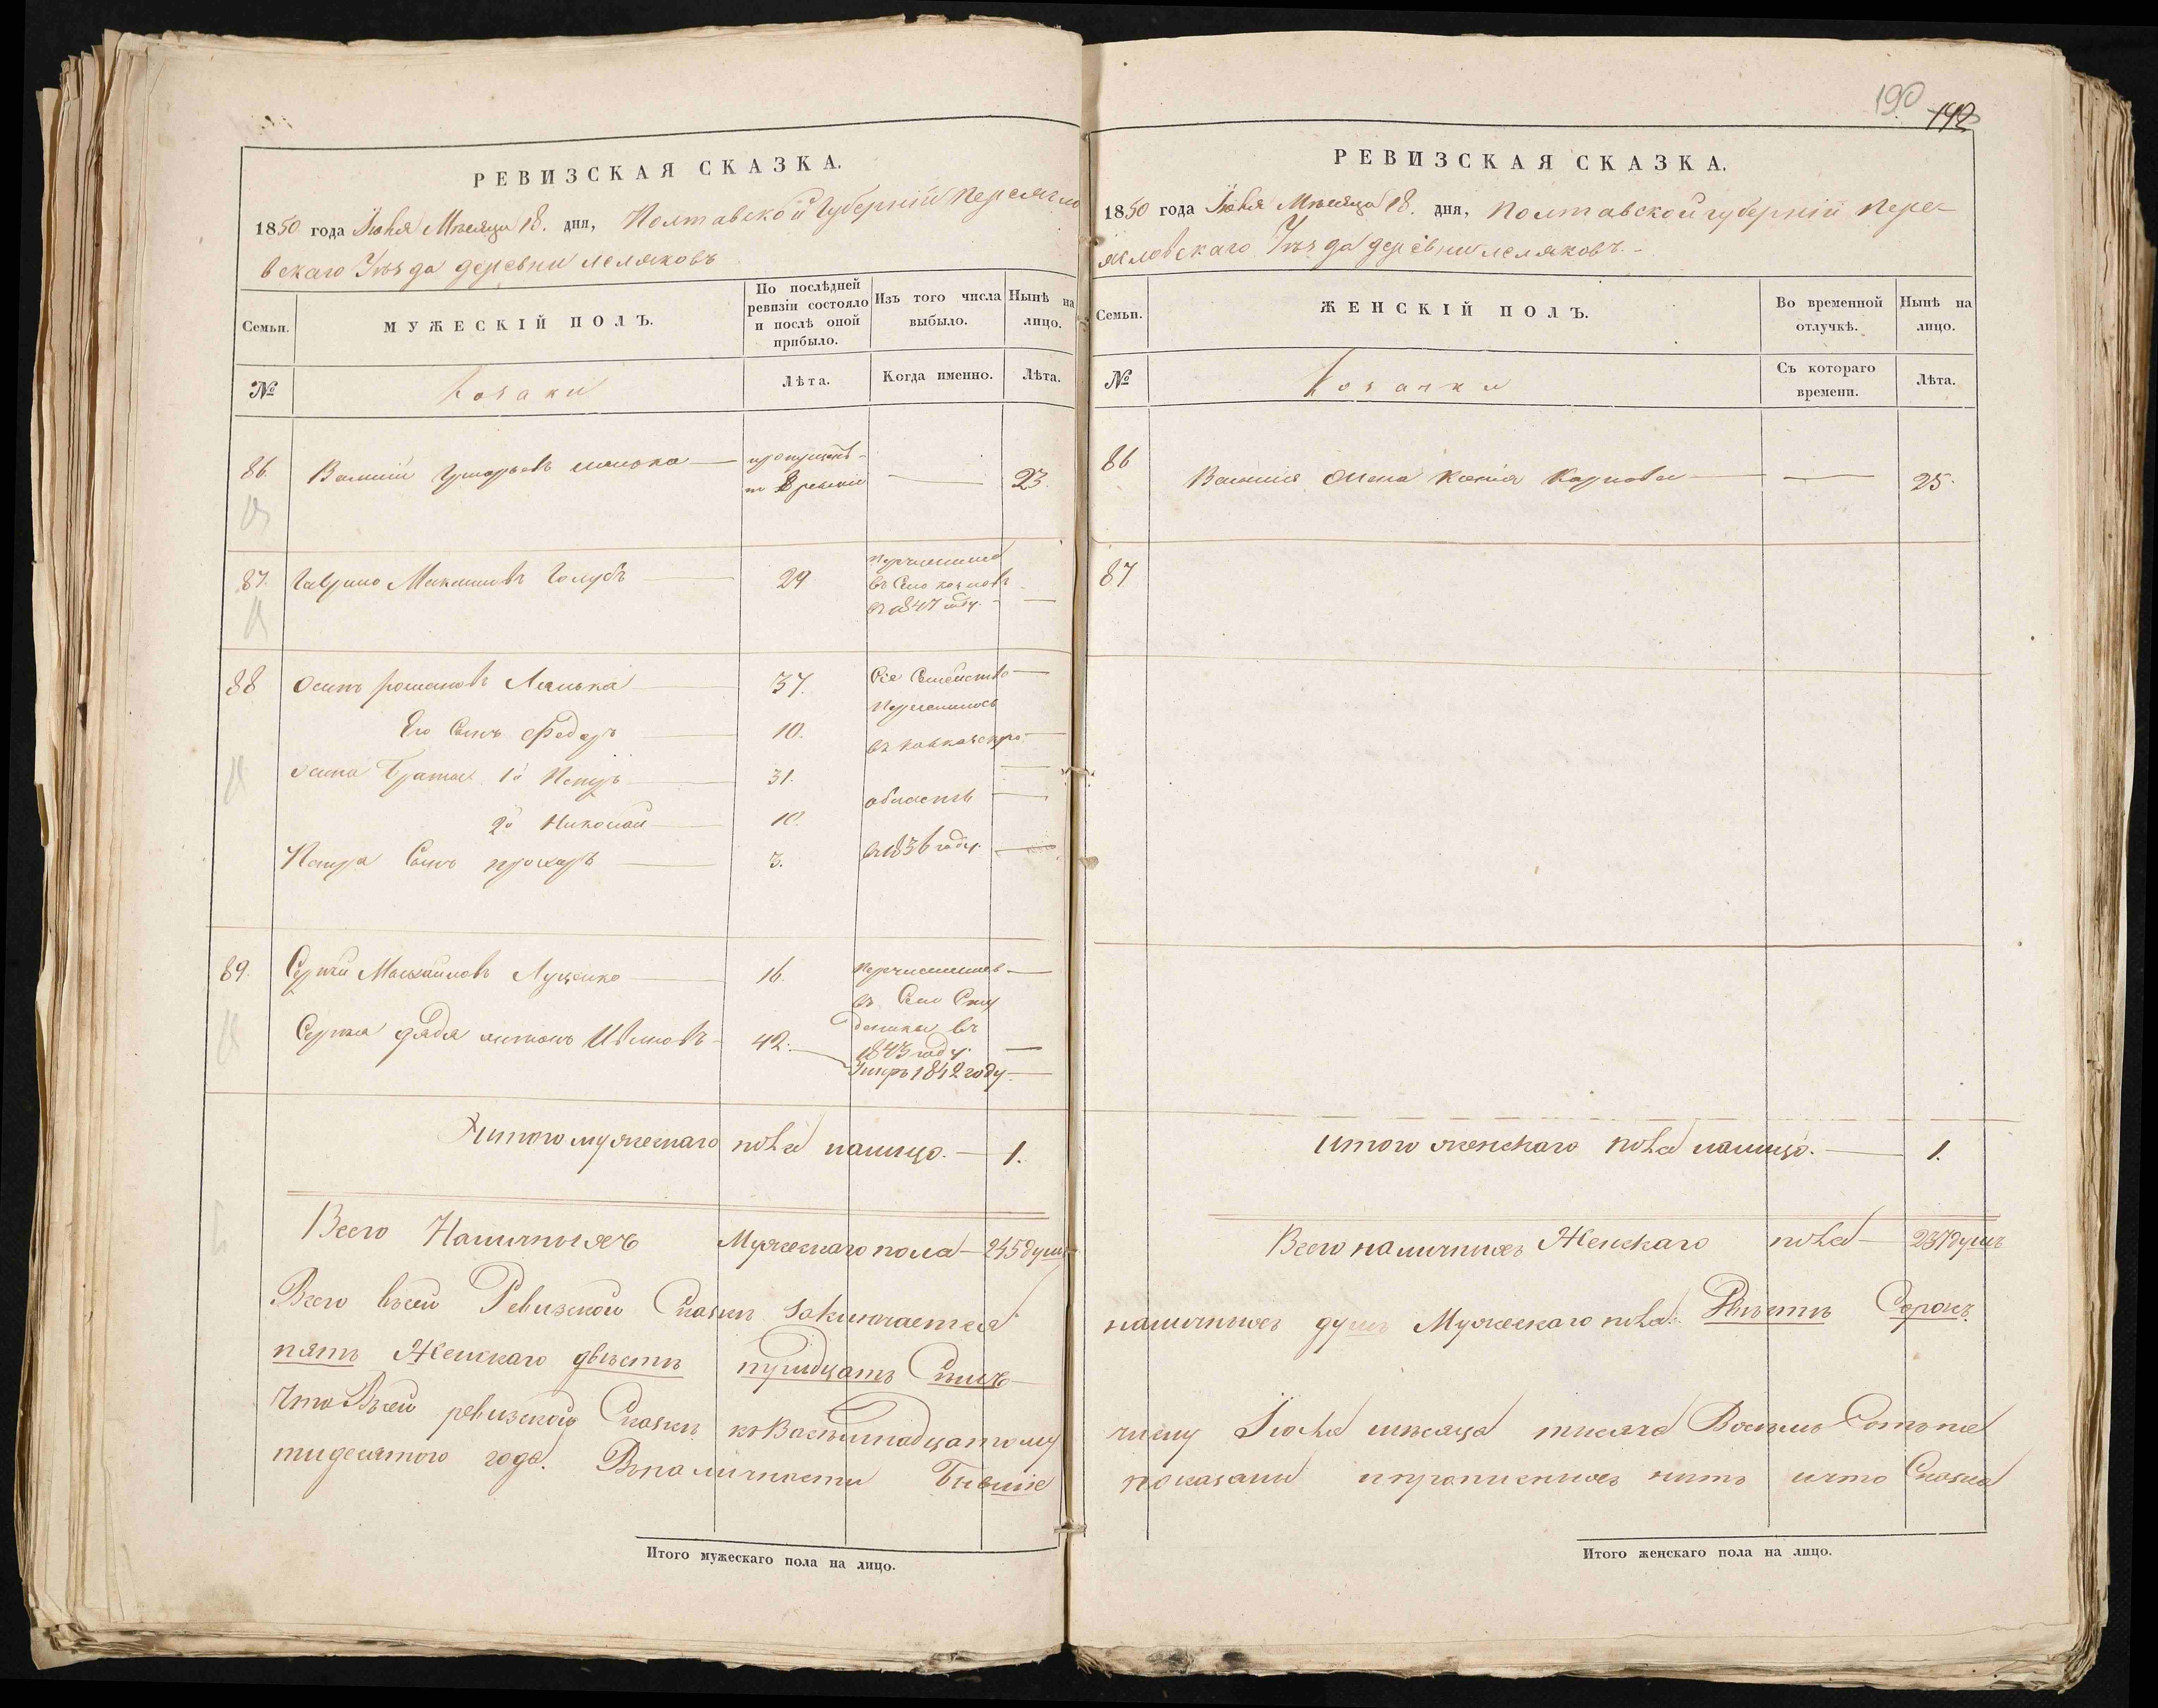 190
142
РЕВИЗСКАЯ СКАЗКА.
1850 года Іюня Мѣсяца 18. дня, Полтавской Губерніи Переясло
вскаго Уѣзда деревни Леляковъ
Семьи.
МУЖЕСКІЙ ПОЛЪ.
По послѣдней
ревизіи состояло
и послѣ оной
прибыло.
Изъ того числа
выбыло.
Нынѣ на
лицо.
№
Козаки
Лѣта.
Когда именно.
Лѣта.
86.
Василій Григорьевъ
23.
87.
Гаврило Максимовъ Голубъ
29
въ Село
въ 1847 году.
88
Осипъ романовъ Лялька
37.
Сіе Семейство
Его Сынъ Федоръ
10.
въ Кавказскую
Осипа Братья 1й Петръ
31.
область
2й Николай
10.
Петра Сынъ прохоръ
3.
въ 1836 году.
89.
Сергій Михайловъ Луценко
16.
въ Село Сту
деники въ
1843 году.
Сергія дядя антонъ Ивановъ
42.
Умеръ 1842 году.
Итого мужескаго пола налицо.
1.
Всего Наличныхъ Мужескаго пола 245 душъ
Всего въсей Ревизской Сказкѣ заключается
пять Женскаго двѣсти тридцать Семь
Что Въсей ревизской Сказкѣ къ Восемьнадцатому
тидесятого года. Вналичности Бывшіе
Итого мужескаго пола на лицо.
РЕВИЗСКАЯ СКАЗКА.
1850 года Іюня Мѣсяца 18. дня, Полтавской губерніи Пере-
яславскаго Уѣзда деревни Леляковъ.
Семьи.
ЖЕНСКІЙ ПОЛЪ.
Во временной
отлучкѣ.
Нынѣ на
лицо.
№
Козачки
Съ котораго
времени.
Лѣта.
86
Василія Жена Ксенія Карпова
25.
87
Итого женскаго пола налицо.
1.
Всего наличныхъ Женскаго пола 237 душъ
наличныхъ душъ Мужескаго пола: Двѣсти Сорокъ
числу Іюня мѣсяца тысяча Восемь Сотъ пя
показаны ипрописныхъ нитъ ичто Сказка
Итого женскаго пола на лицо.